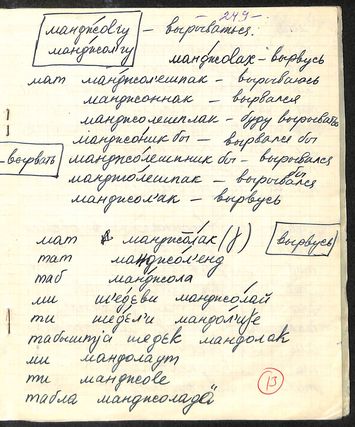 - 249 -
манджо̄лгу — вырываться.
манджолгу
манджолах - вырвусь
мат манджолешпак - вырываюсь
манджоннак - вырвался
манджолешплак - буду вырывать
манджоник бы - вырвался бы
вырвать манджолешпник бы - вырывался бы
манджолешпак - вырывался
манджолʼак - вырвусь
мат манджо̄лак (γ) вырвусь
тат манджолʼенд
таб манджола
ми шʼедеви манджолай
ти шеделʼи
табыштја шедек мандолак
ми мандолаут
ти манджове
табла манджоладӥ
13